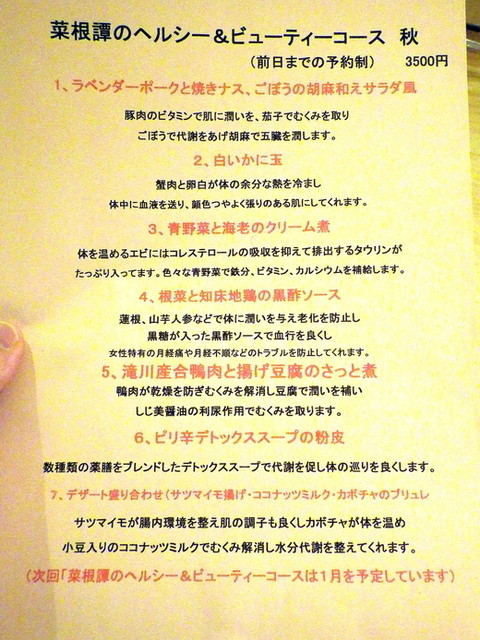 菜根譚のヘルシー＆ビューティーコース 秋
（前日までの予約制） 3500円
1、ラベンダーポークと焼きナス、ごぼうの胡麻和えサラダ風
豚肉のビタミンで肌に潤いを、茄子でむくみを取り
ごぼうで代謝をあげ胡麻で五臓を潤します。
2、白いかに玉
蟹肉と卵白が体の余分な熱を冷まし
体中に血液を送り、顔色つやよく張りのある肌にしてくれます。
3、青野菜と海老のクリーム煮
体を温めるエビにはコレステロールの吸収を抑えて排出するタウリンが
たっぷり入ってます。色々な青野菜で鉄分、ビタミン、カルシウムを補給します。
4、根菜と知床地鶏の黒酢ソース
蓮根、山芋人参などで体に潤いを与え老化を防止し
黒糖が入った黒酢ソースで血行を良くし
女性特有の月経痛や月経不順などのトラブルを防止してくれます。
5、滝川産合鴨肉と揚げ豆腐のさっと煮
鴨肉が乾燥を防ぎむくみを解消し豆腐で潤いを補い
しじ美醤油の利尿作用でむくみを取ります。
6、ピリ辛デトックススープの粉皮
数種類の薬膳をブレンドしたデトックススープで代謝を促し体の巡りを良くします。
7、デザート盛り合わせ（サツマイモ揚げ・ココナッツミルク・カボチャのブリュレ
サツマイモが腸内環境を整え肌の調子も良くカボチャが体を温め
小豆入りのココナッツミルクでむくみ解消し水分代謝を整えてくれます。
（次回「菜根譚のヘルシー＆ビューティーコースは1月を予定しています）